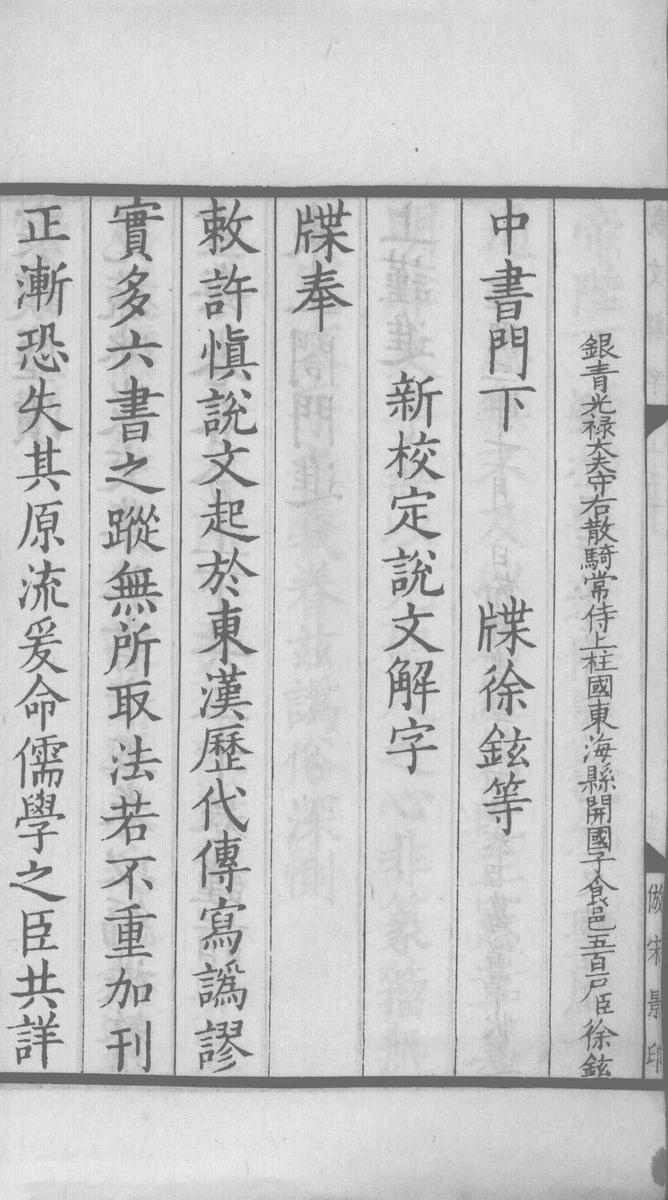 銀青光祿大夫守右散騎常侍上柱國東海縣開國子食邑五百戶臣徐鉉
中書門下　牒徐鉉等
新校定說文解字
牒奉
敕許慎說文起於東漢歷代傳寫譌謬
實多六書之蹤無所取法若不重加刊
正漸恐失其原流爰命儒學之臣共詳
倣宋景印